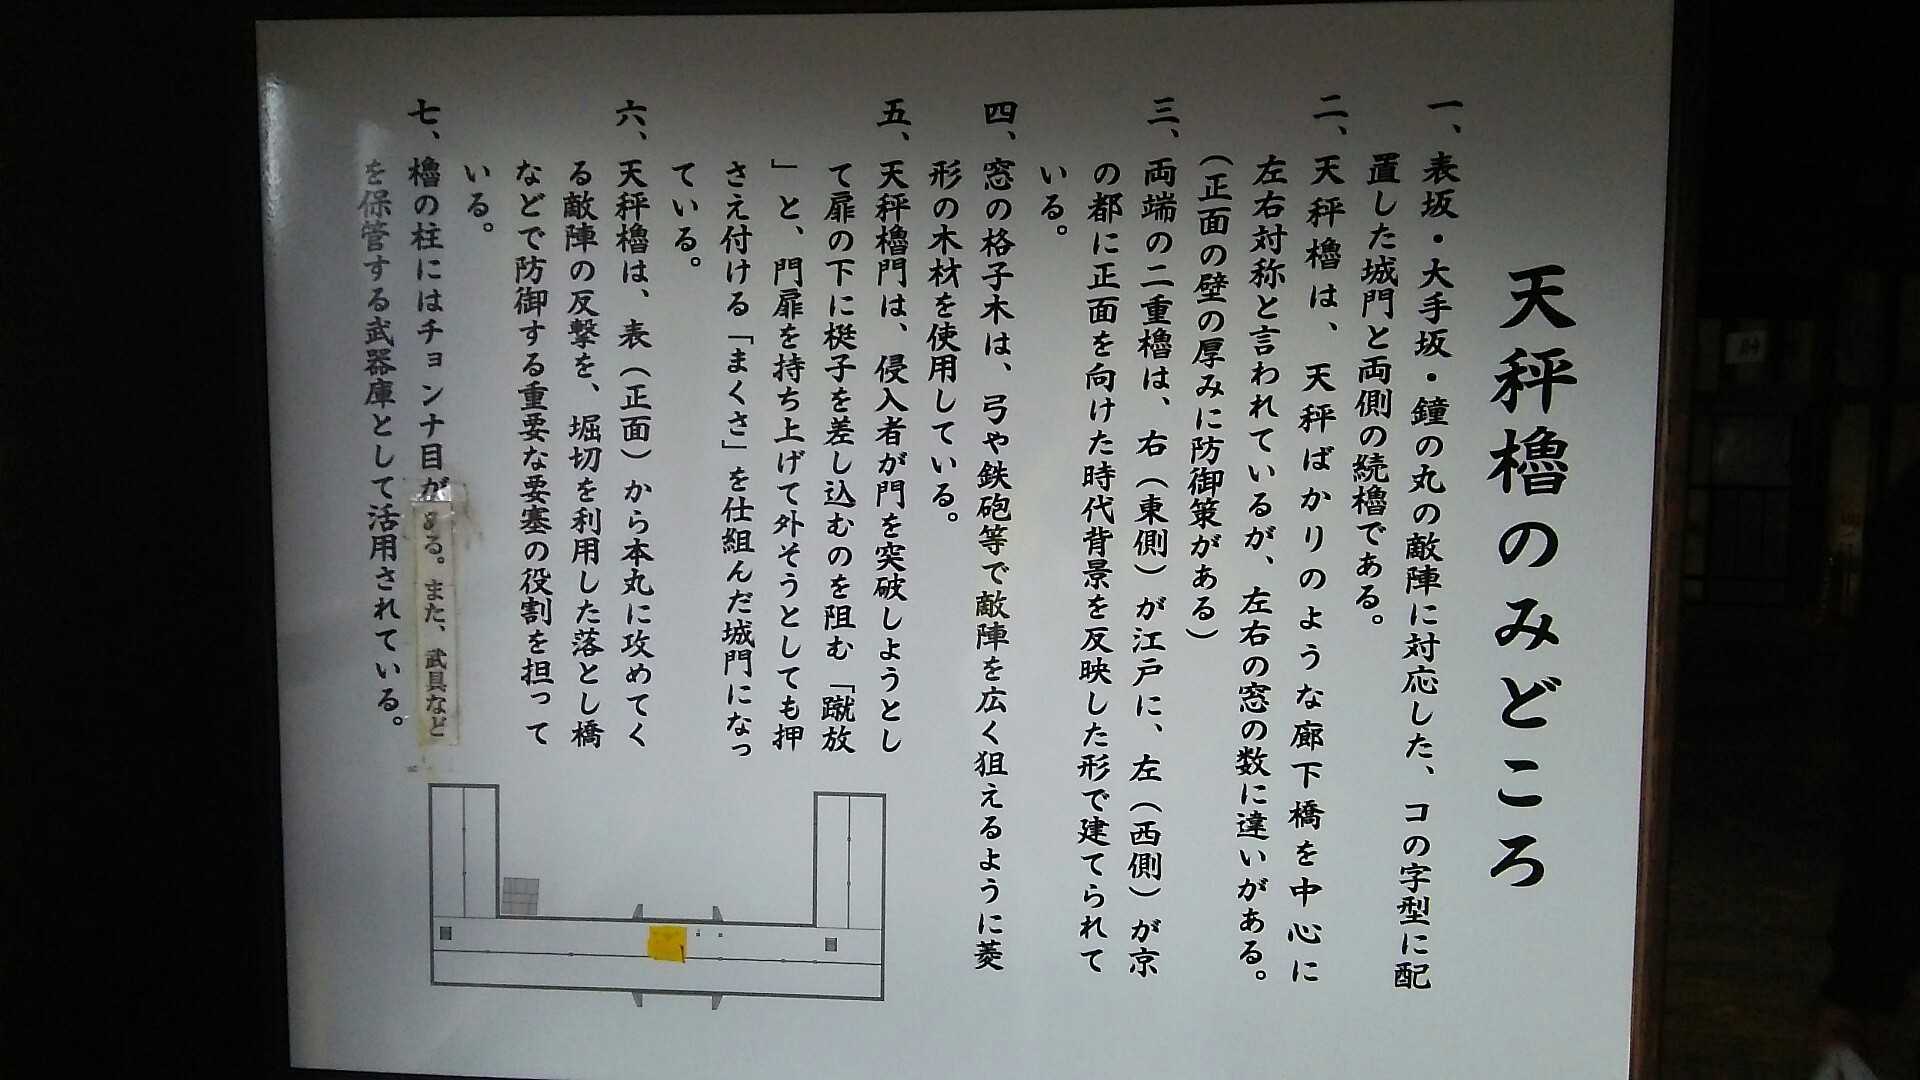 天秤櫓のみどころ
一、表坂・大手坂・鐘の丸の敵陣に対応した、コの字型に配
置した城門と両側の続櫓である。
二、天秤櫓は、天秤ばかりのような廊下橋を中心に
左右対称と言われているが、左右の窓の数に違いがある。
（正面の壁の厚みに防御策がある）
三、両端の二重櫓は、右（東側）が江戸に、左（西側）が京
の都に正面を向けた時代背景を反映した形で建てられて
いる。
四、窓の格子木は、弓や鉄砲等で敵陣を広く狙えるように菱
形の木材を使用している。
五、天秤櫓門は、侵入者が門を突破しようとし
て扉の下に梃子を差し込むのを阻む「蹴放
」と、門扉を持ち上げて外そうとしても押
さえ付ける「まくさ」を仕組んだ城門になっ
ている。
六、天秤櫓は、表（正面）から本丸に攻めてく
る敵陣の反撃を、堀切を利用した落とし橋
などで防御する重要な要塞の役割を担って
いる。
七、櫓の柱にはチョンナ目がある。また、武具など
を保管する武器庫として活用されている。